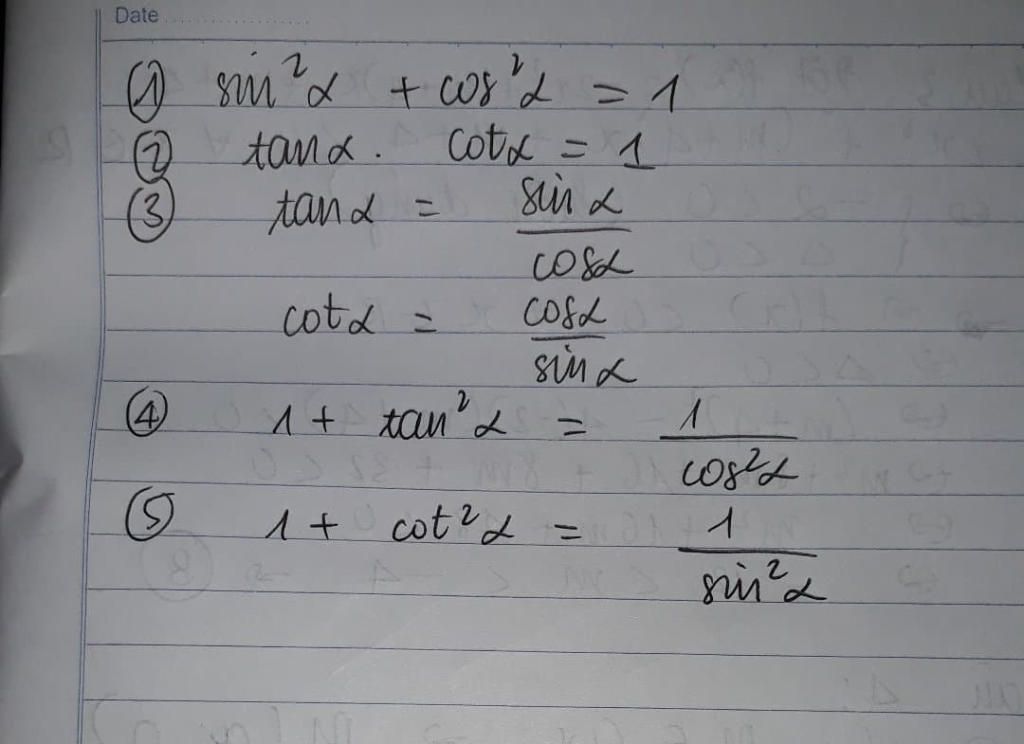 Date
① sin²α + cos²α = 1
② tanα . cotα = 1
③ tanα = sinα / cosα
cotα = cosα / sinα
④ 1 + tan²α = 1 / cos²α
⑤ 1 + cot²α = 1 / sin²α